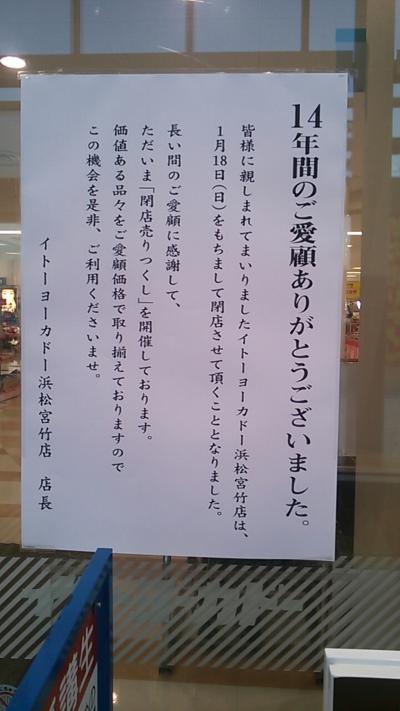 14年間のご愛顧ありがとうございました。
皆様に親しまれてまいりましたイトーヨーカドー浜松宮竹店は、
1月18日(日)をもちまして閉店させて頂くこととなりました。
長い間のご愛顧に感謝して、
ただいま「閉店売りつくし」を開催しております。
価値ある品々をご愛顧価格で取り揃えておりますので
この機会を是非、ご利用くださいませ。
イトーヨーカドー浜松宮竹店 店長